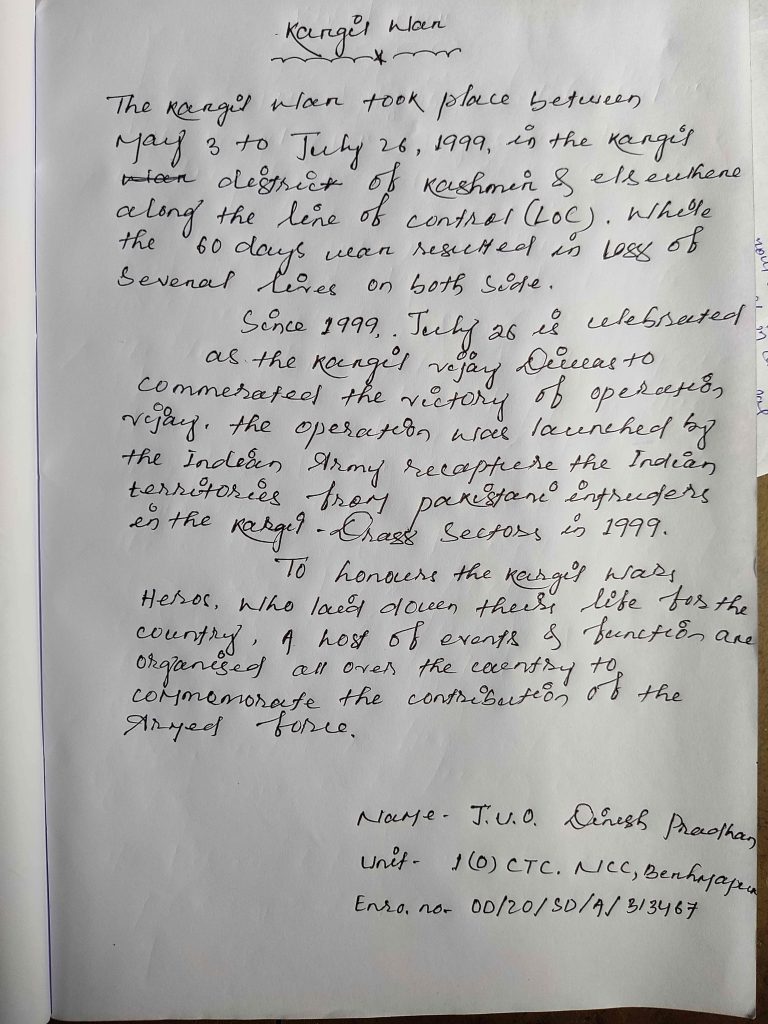 Kargil War
The Kargil war took place between
May 3 to July 26, 1999, in the Kargil
war district of Kashmir & elsewhere
along the line of control (LOC). While
the 60 days war resulted in loss of
Several lives on both Side.
Since 1999,. July 26 is celebrated
as the Kargil vijay Diwas to
commerated the victory of operation
vijay. the operation was launched by
the Indian Army recapture the Indian
territories from pakistani intruders
in the Kargil - Drass Sectors in 1999.
To honours the Kargil wars
Heros, who laid down theirs life for the
country, A host of events & function are
organised all over the country to
commomorate the contribution of the
Armed force.
Name- J.U.O. Dinesh Pradhan
Unit- 1(O) CTC. NCC, Berhmapur
Enro. no- OD/20/SD/A/313467